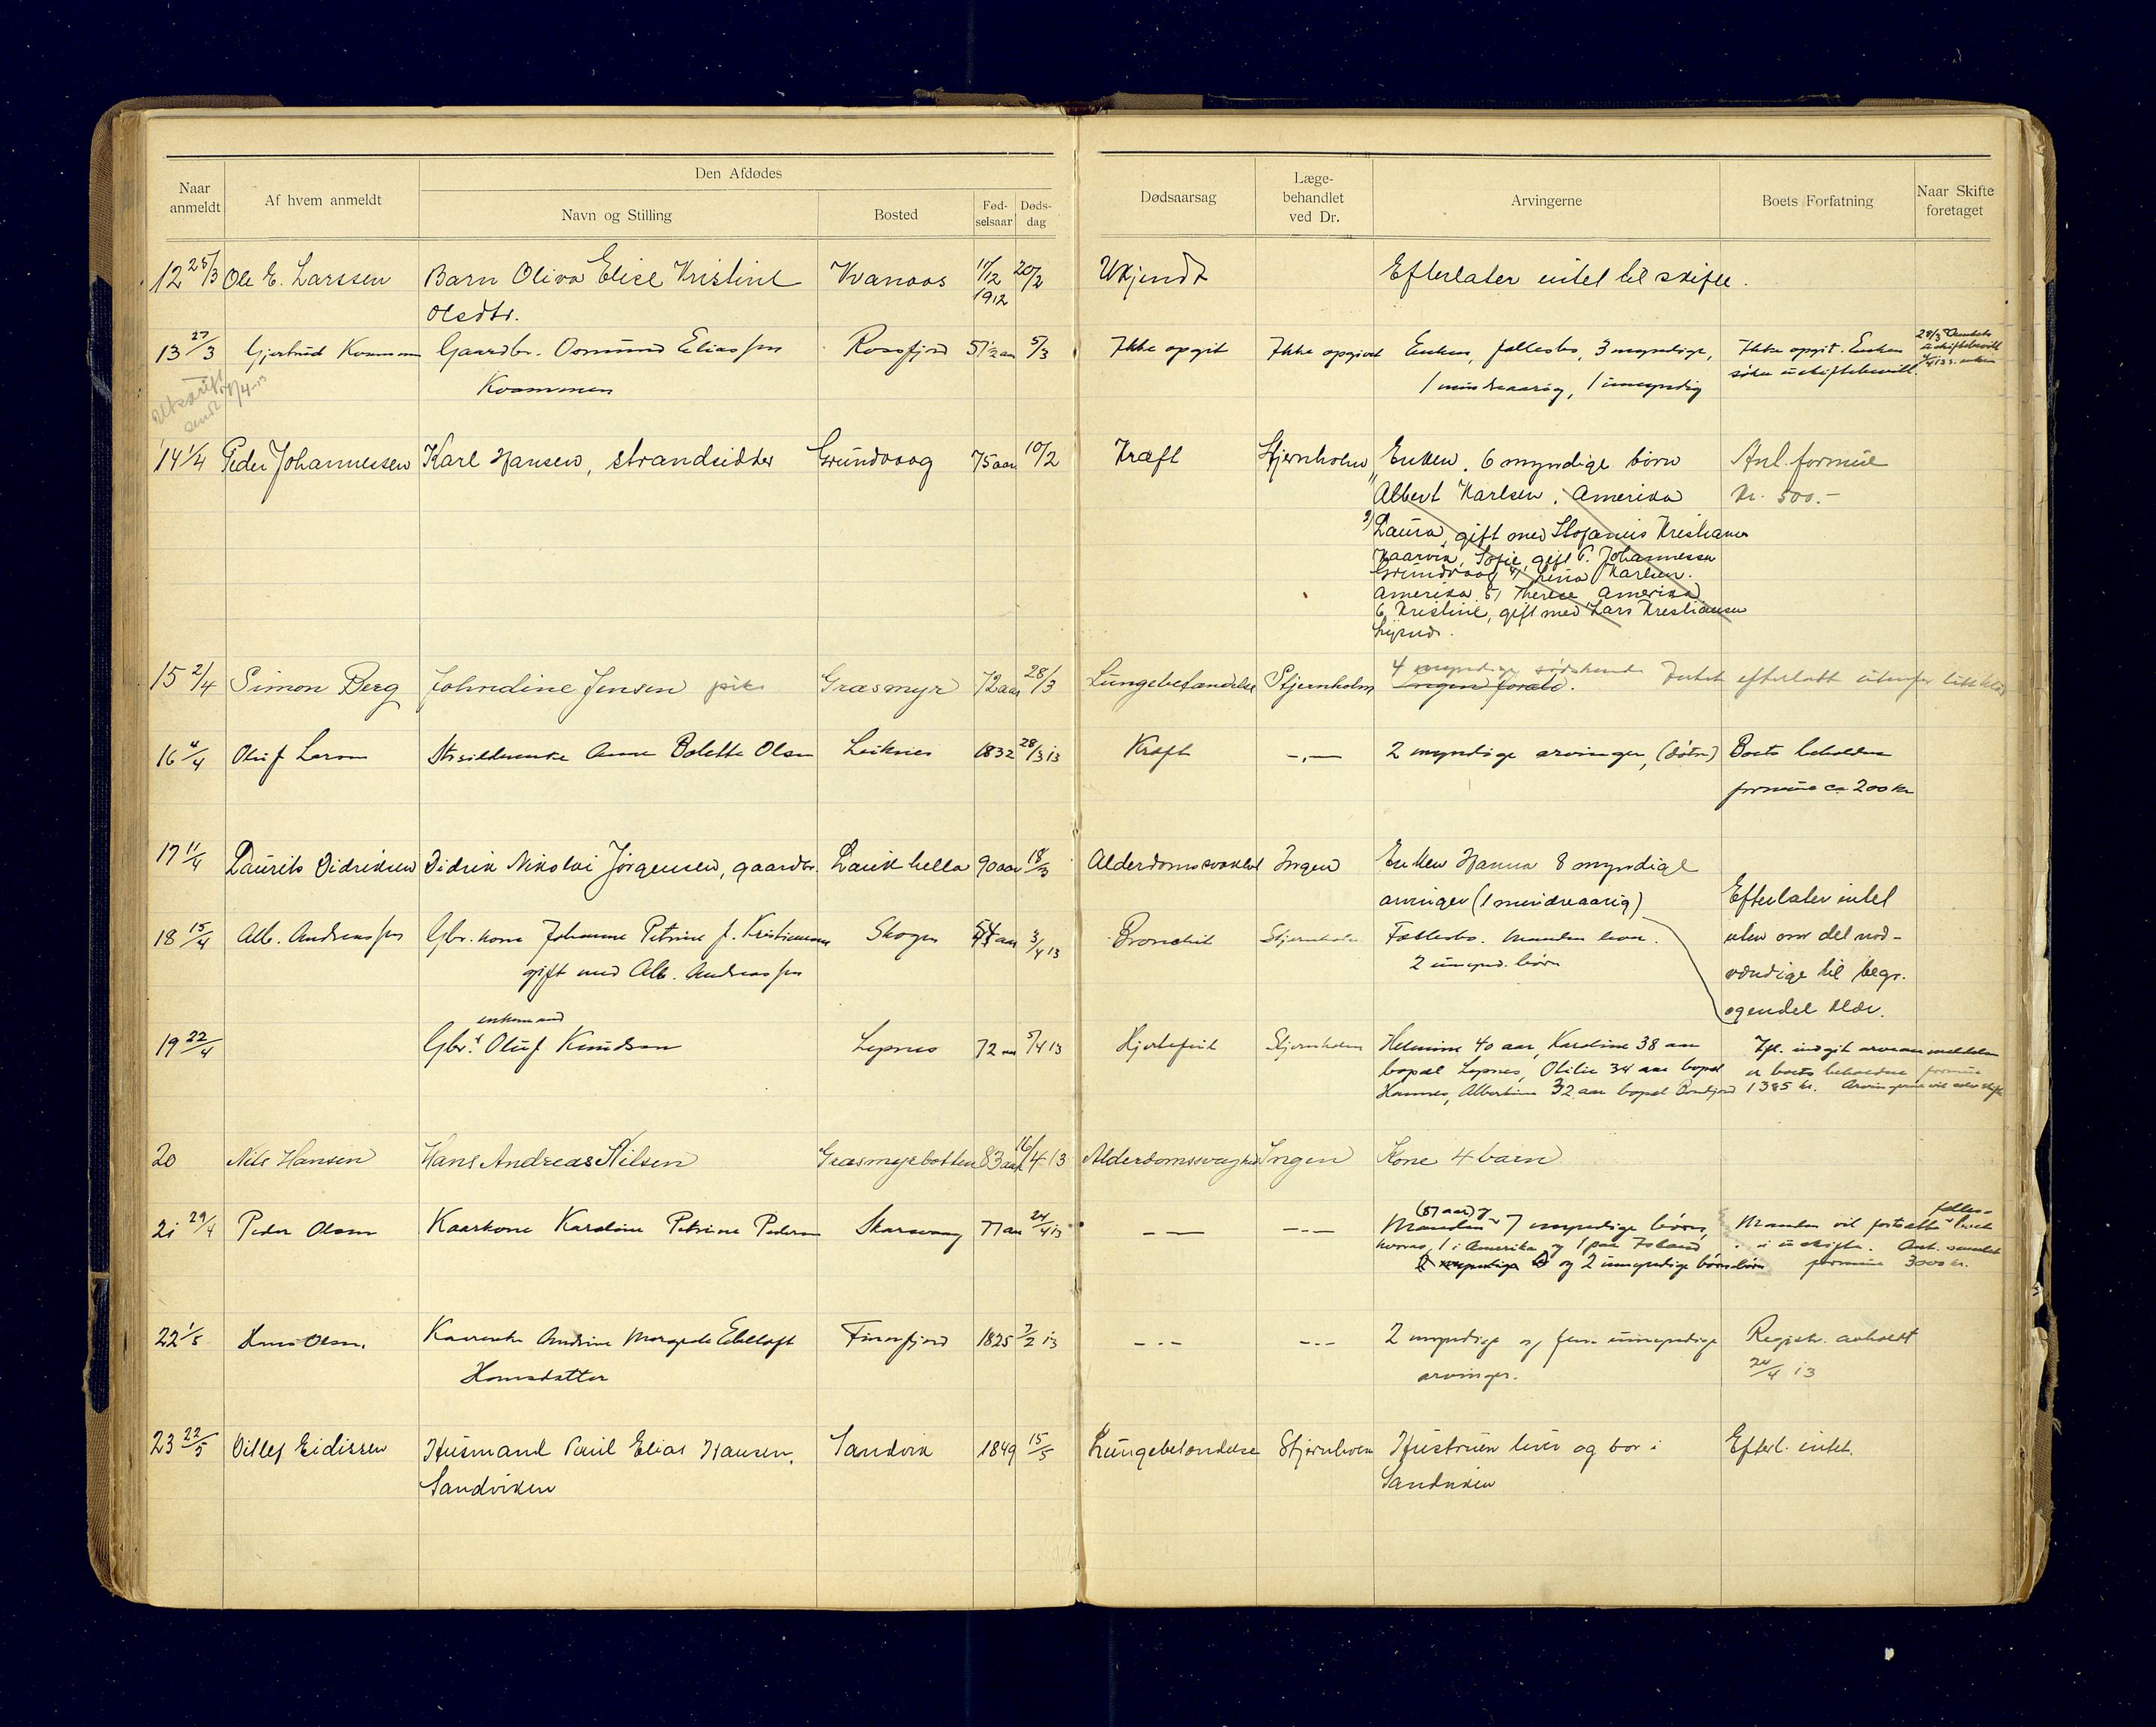 Den Afdødes
Naar anmeldt
Af hvem anmeldt
Navn og Stilling
Bosted
Fød-selsaar
Døds-dag
Dødsaarsag
Læge-behandlet ved Dr.
Arvingerne
Boets Forfatning
Naar Skifte foretaget
12 25/3 Ole E. Larssen Barn Oliva Elise Kristine Kvanaas 11/12 20/2 Ukjendt Efterlater intet til skifte.
Olsdtr. 1912
13 27/3 Gjertrud Gaardbr. Osmund Eliassen Rossfjord 51½ aar 5/3 Ikke opgit Ikke opgivet Enken, fællesbo, 3 myndige, Ikke opgit. Enken
Kvammen 1 mindreaarig, 1 umyndig søker uskiftebevill.
Utskrift sendt 4/4-13
14 1/4 Peder Johannessen Karl Hansen, strandsidder Grundvaag 75 aar 10/2 Kræft Stjernholm Enken. 6 myndige børn Anl. formue
Albert Karlsen, Amerika Kr. 500.-
Laura, gift med Stofanus Kristiansen
Kaarvik, Sofie, gift P. Johannessen
Grundvaag 4) Lina Karlsen.
Amerika. 5) Therese Amerika
6, Kristine, gift med Lars Kristiansen
15 2/4 Simon Berg Johndine Jensen pike Græsmyr 72 aar 28/3 Lungebetændelse Stjernholm 4 myndige sødskende Intet efterlatt utenfor litt klær
Ingen foræld.
16 4/4 Oluf Larsen Anne Bolette Olsen Leiknes 1832 28/3 13 Kræft -.- 2 myndige arvinger, (døtre) Boets beholdne
formue ca 200 kr
17 11/4 Laurits Didriksen Didrik Nikolai Jørgensen, gaardbr. Laukhella 90 aar 18/3 Alderdomssvakhet Ingen Enken Hanna 8 myndige
arvinger (1 mindreaarig) Efterlater intet
18 15/4 Alb. Andreassen Gbr. kone Johanne Petrine f. Kristiansen Skogen 54 aar 3/4 13 Bronchit Stjernholm Fællesbo. Manden lever. uten om det nød-
gift med Alb. Andreassen 2 umynd. børn vendige til begr.
ogendel klær.
enkemand
19 22/4 Gbr. Oluf Knudsen Lepnes 72 aar 5/4 13 Hjertefeil Stjernholm Helmine 40 aar, Karoline 38 aar Ifl. indgit arveanmeldelse
bopæl Lepnes, Otilie 34 aar bopæl er boets beholdne formue
Hannes, Albertine 32 aar bopæl 1385 kr. Arvingerne vil selv skifte
20 Nils Hansen Hans Andreas Nilsen Græsmyrbotten 83 aar 16/4 13 Alderdomssvaghet Ingen Kone 4 barn
21 29/4 Peder Olsen Kaarkone Karoline Petrine Pedersen Skarsvaag 77 aar 24/4 13 -- -.- Manden 7 myndige børn, Manden vil fortsætte i fælles-boet
hvorav 1 i Amerika og 1 paa Island i uskifte. Ant. samlet
og 2 umyndige børnebørn formue 3000 kr.
22 1/5 Hans Olsen. Kaarenke Andrine Margrete Ebeltoft Finnfjord 1825 7/2 13 -.- -.- 2 myndige og fem umyndige Registr. avholdt
Hansdatter arvinger. 24/4 13
23 22/5 Ditlef Eidissen Husmand Paul Elias Hansen, Sandvik 1849 15/5 Lungebetændelse Stjernholm Hustruen lever og bor i Efterl. intet.
Sandviken Sandviken